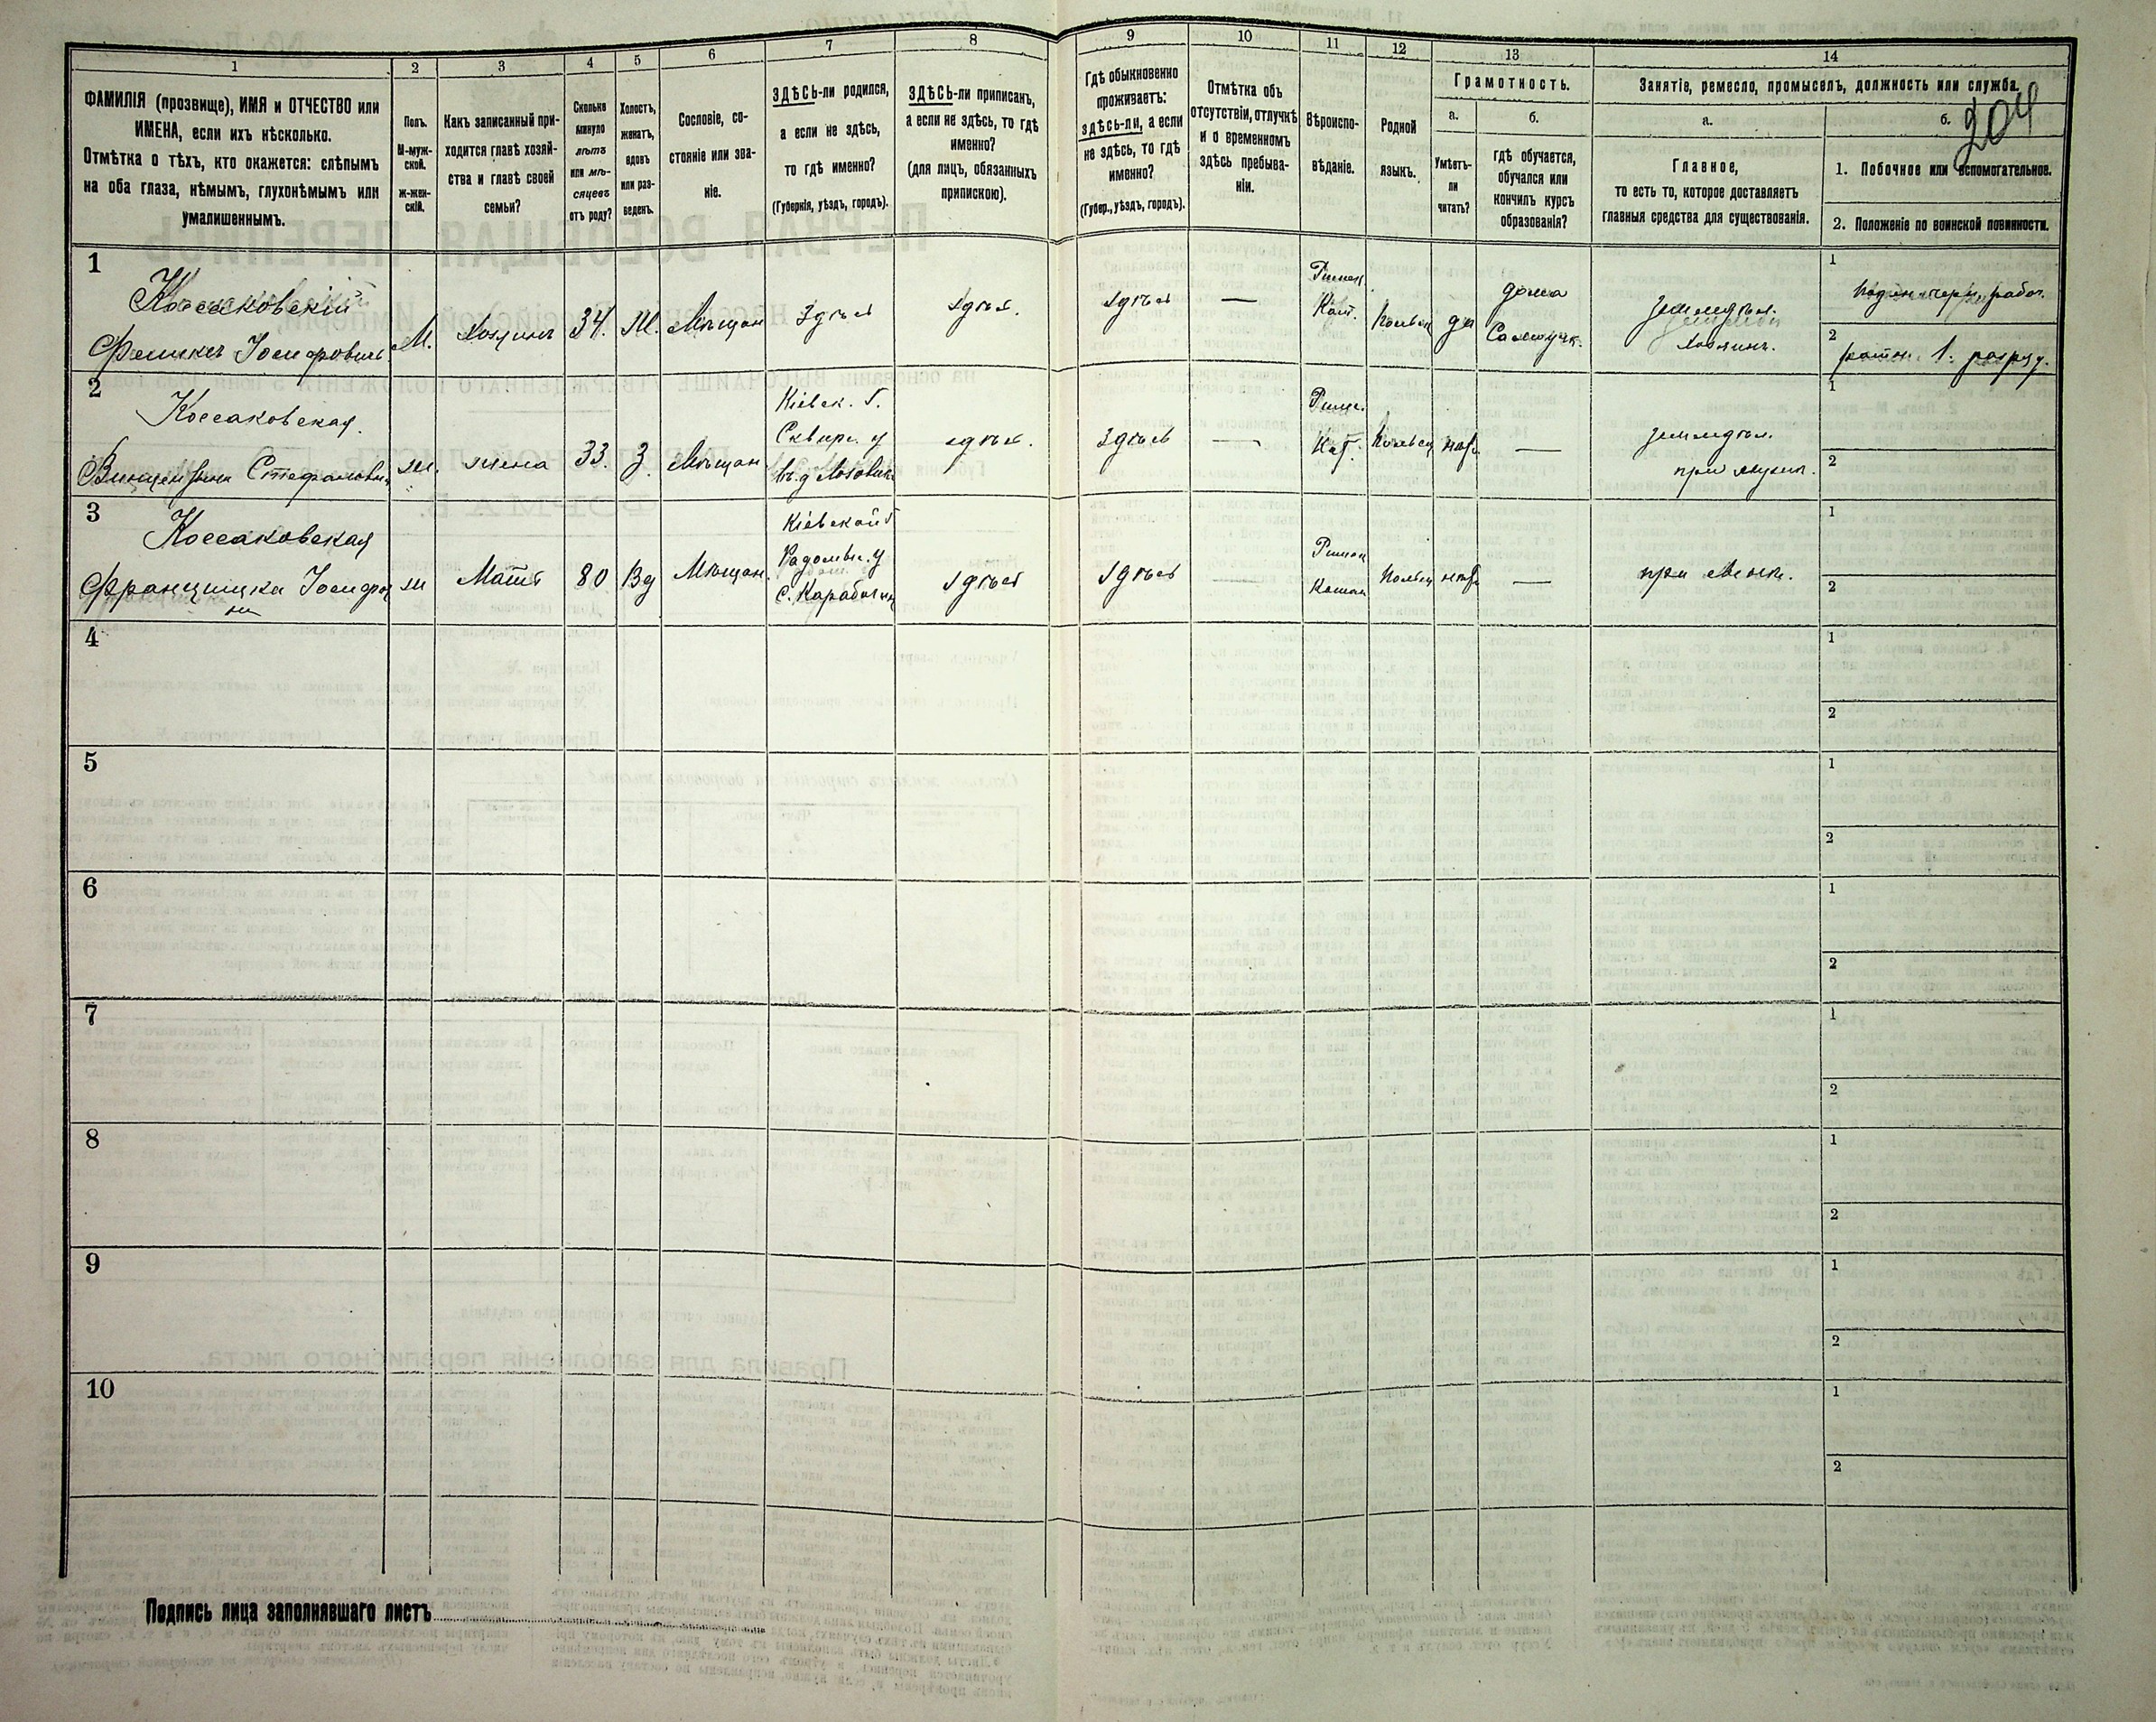 204
1
2
3
4
5
6
7
8
9
10
11
12
13
14
ФАМИЛІЯ (прозвище), ИМЯ и ОТЧЕСТВО или
ИМЕНА, если ихъ нѣсколько.
Отмѣтка о тѣхъ, кто окажется: слѣпымъ
на оба глаза, нѣмымъ, глухонѣмымъ или
умалишеннымъ.
Полъ.
М-муж-
ской.
ж-жен-
скій.
Какъ записанный при-
ходится главѣ хозяй-
ства и главѣ своей
семьи?
Сколько
минуло
лѣтъ
или мѣ-
сяцевъ
отъ роду?
Холостъ,
женатъ,
вдовъ
или раз-
веденъ.
Сословіе, со-
стояніе или зва-
ніе.
ЗДѢСЬ-ли родился,
а если не здѣсь,
то гдѣ именно?
(Губернія, уѣздъ, городъ).
ЗДѢСЬ-ли приписанъ,
а если не здѣсь, то гдѣ
именно?
(для лицъ, обязанныхъ
припискою).
Гдѣ обыкновенно
проживаетъ:
здѣсь-ли, а если
не здѣсь, то гдѣ
именно?
(Губер., уѣздъ, городъ).
Отмѣтка объ
отсутствіи, отлучкѣ
и о временномъ
здѣсь пребыва-
ніи.
Вѣроиспо-
вѣданіе.
Родной
языкъ.
Грамотность.
а.
Умѣетъ-
ли
читать?
б.
гдѣ обучается,
обучался или
кончилъ курсъ
образованія?
Занятіе, ремесло, промыселъ, должность или служба.
а.
Главное,
то есть то, которое доставляетъ
главныя средства для существованія.
б.
1. Побочное или вспомогательное.
2. Положеніе по воинской повинности.
1
Коссаковскій
Феликсъ Іосифовичъ
М.
Хозяинъ
34.
Ж.
Мѣщан
Здѣсь
здѣсь.
здѣсь
—
Римск.
Кат.
Польск
да
дома
Самоучк.
земледѣл.
Хозяинъ.
1
2
ратн. 1. разряд.
2
Коссаковская.
Стефановн
ж.
жена
33.
З.
Мѣщан
Кіевск. Г.
Сквирс. у
здѣсь.
Здѣсь
—
Римс.
Кат.
Польск
нѣт
—
земледѣл.
при мужѣ.
1
2
3
Коссаковская
Францишка Іосифов
на
ж
Мать
80
Вд
Мѣщан.
Кіевской Г
Радомыс. у
здѣсь
здѣсь
—
Римск
Катол
Польск
нѣт
—
1
2
4
1
2
5
1
2
6
1
2
7
1
2
8
1
2
9
1
2
10
1
2
Подпись лица заполнявшаго листъ